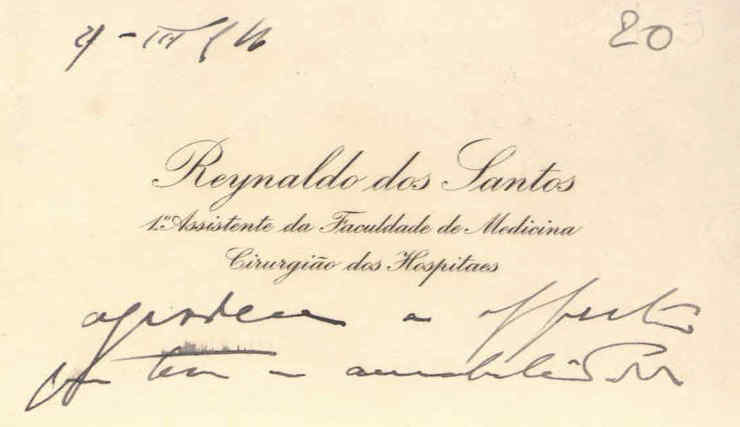 20
Reynaldo dos Santos
1º Assistente da Faculdade de Medicina
Cirurgião dos Hospitaes
agradece a offerta
que tem a